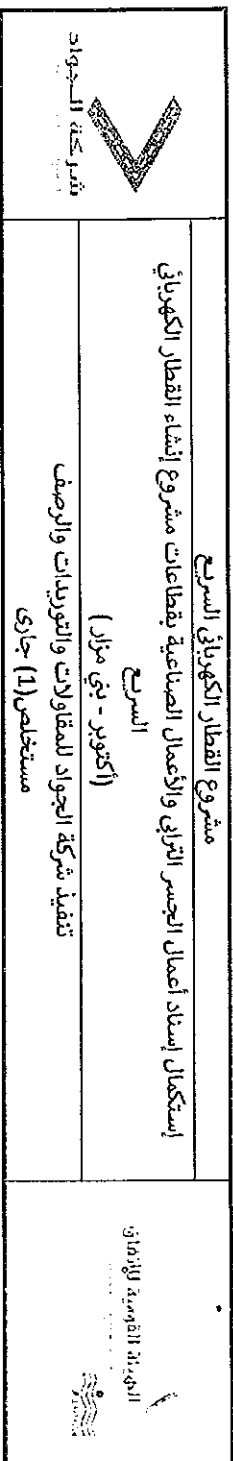 مشروع القطار الكهربائي السريع
إستكمال إسناد أعمال الجسر الترابي والأعمال الصناعية بقطاعات مشروع إنشاء القطار الكهربائي
السريع
(أكتوبر - بني مزار)
تنفيذ شركة الجواد للمقاولات والتوريدات والرصف
مستخلص (1) جارى
شركة الجواد
الهيئة القومية للأنفاق